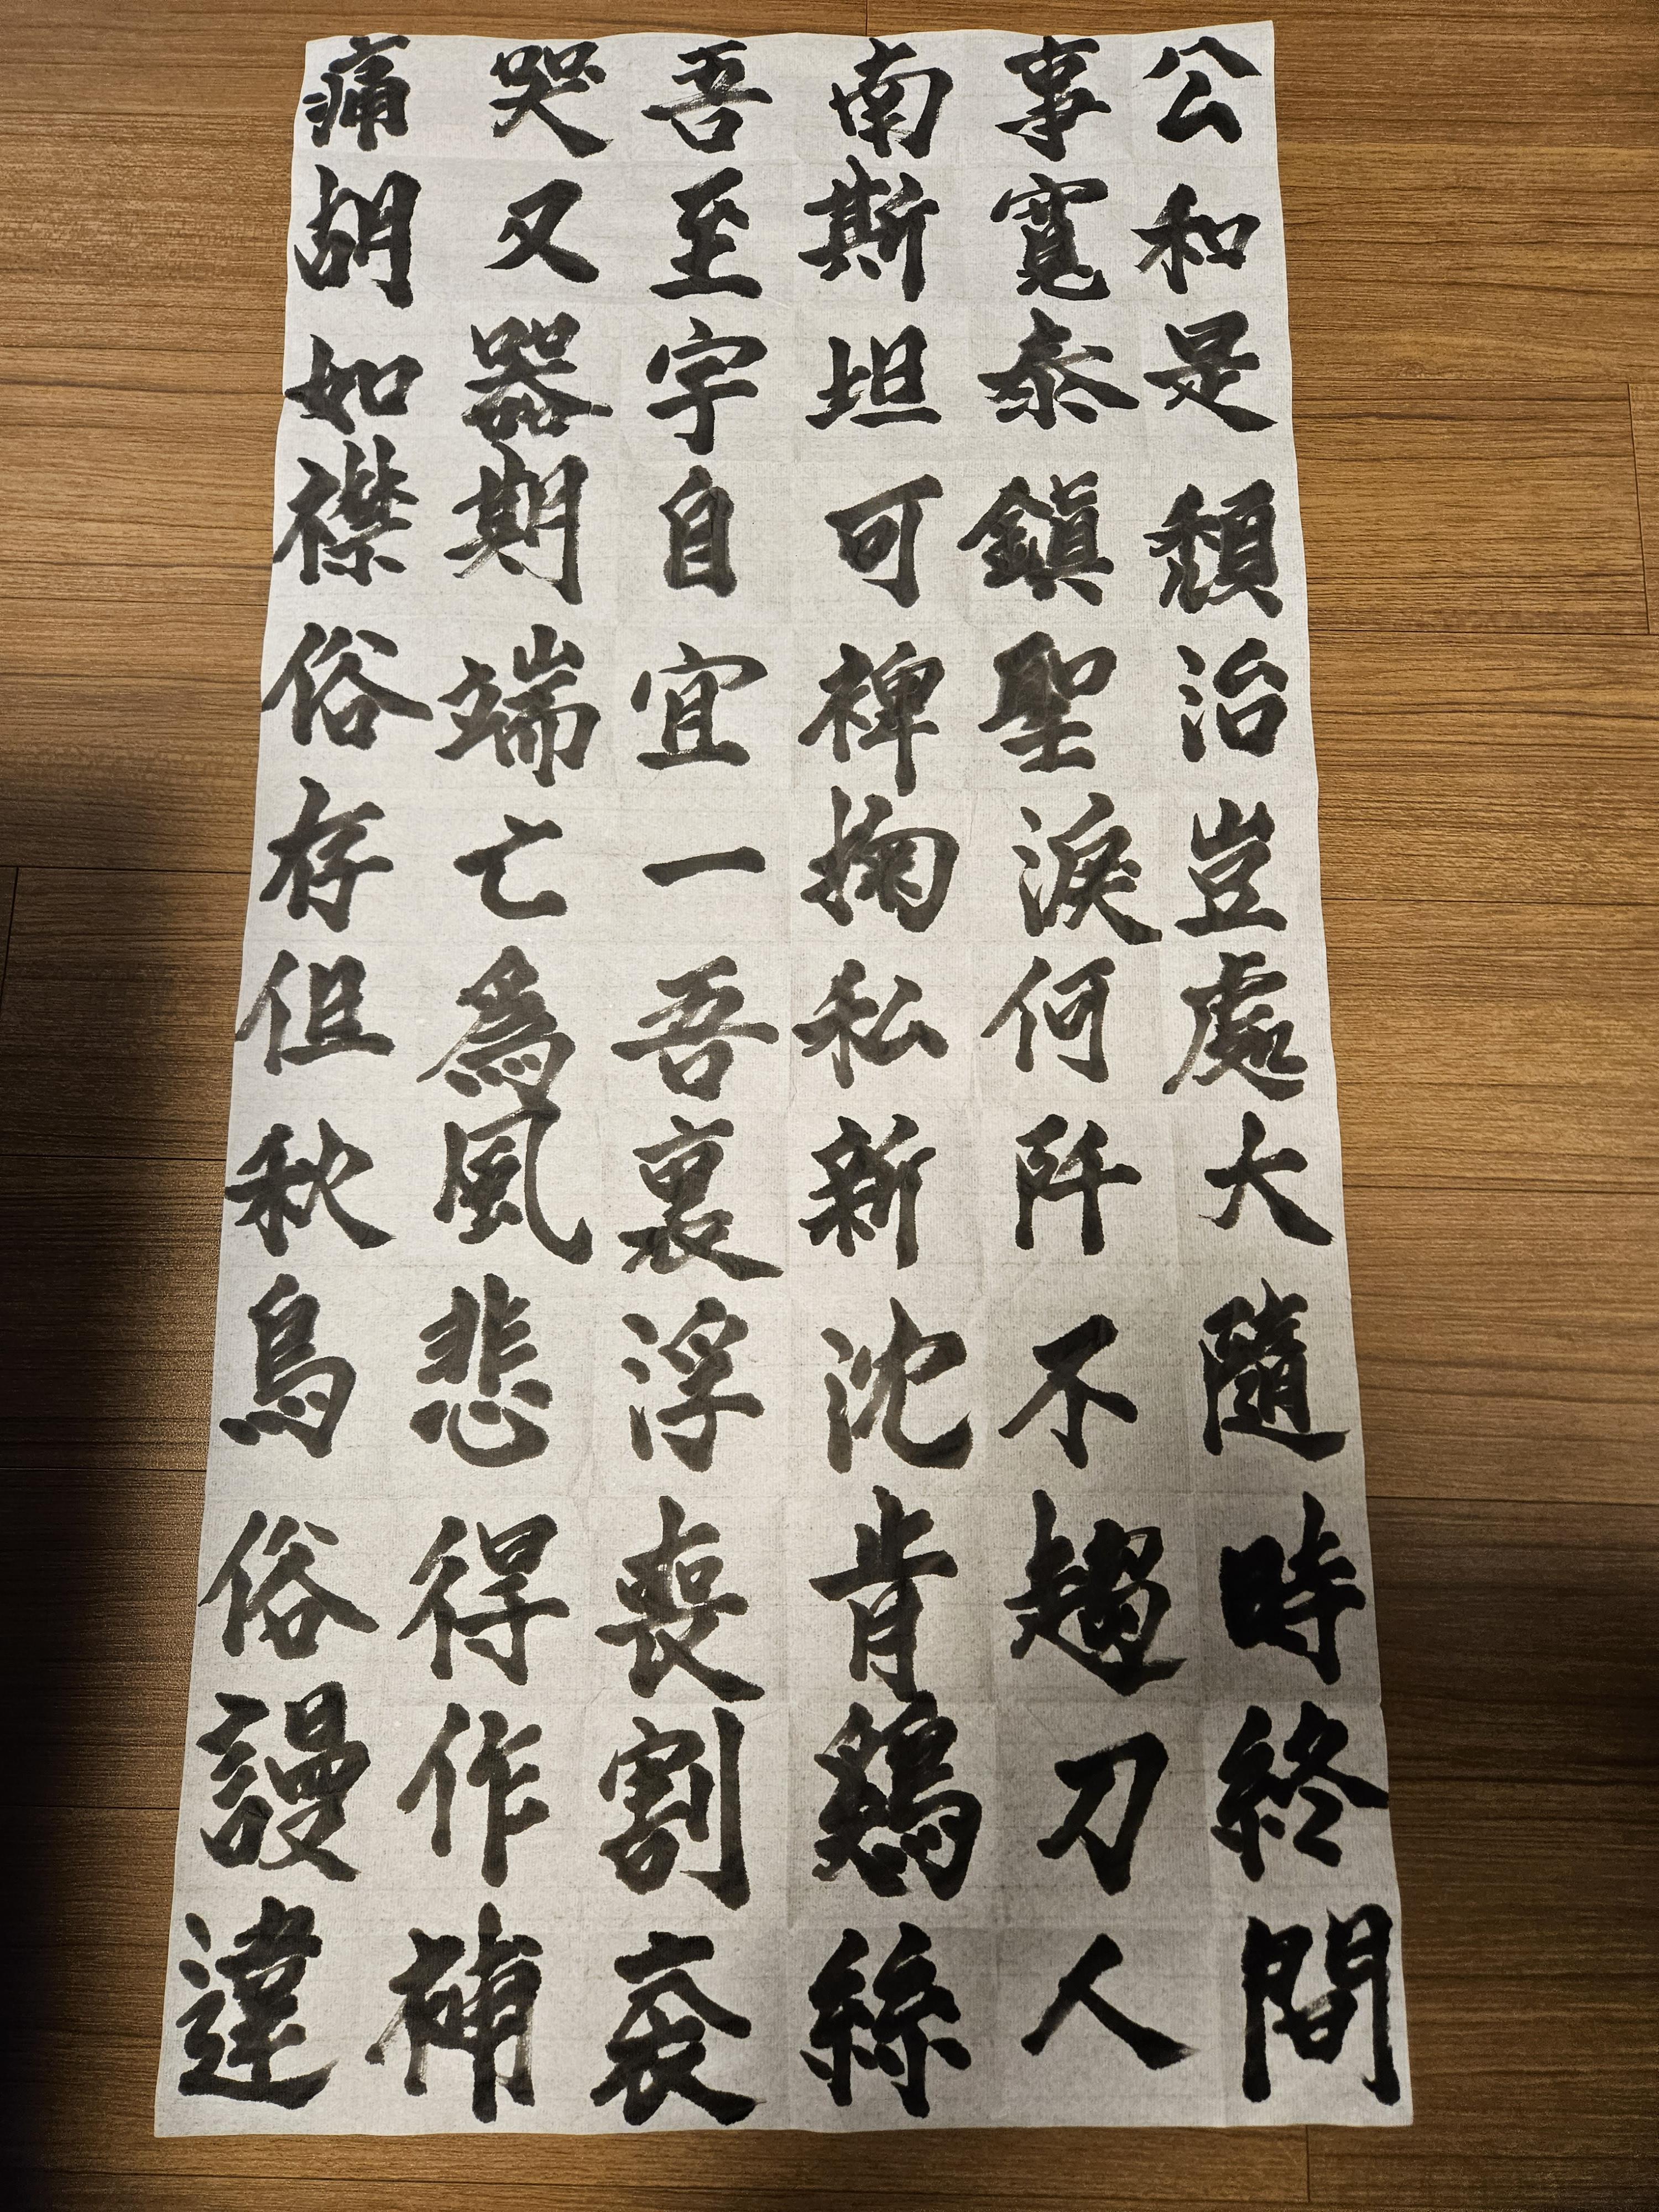 公和是頹治豈處大隨時終間
事寬泰鎭聖淚何阡不趨刀人
南斯坦可裨掬私新沈肯鷄絲
吾至宇自宜一吾裏浮喪割衰
哭又器期端亡爲風悲得作補
痛胡如襟俗存但秋鳥俗謾違